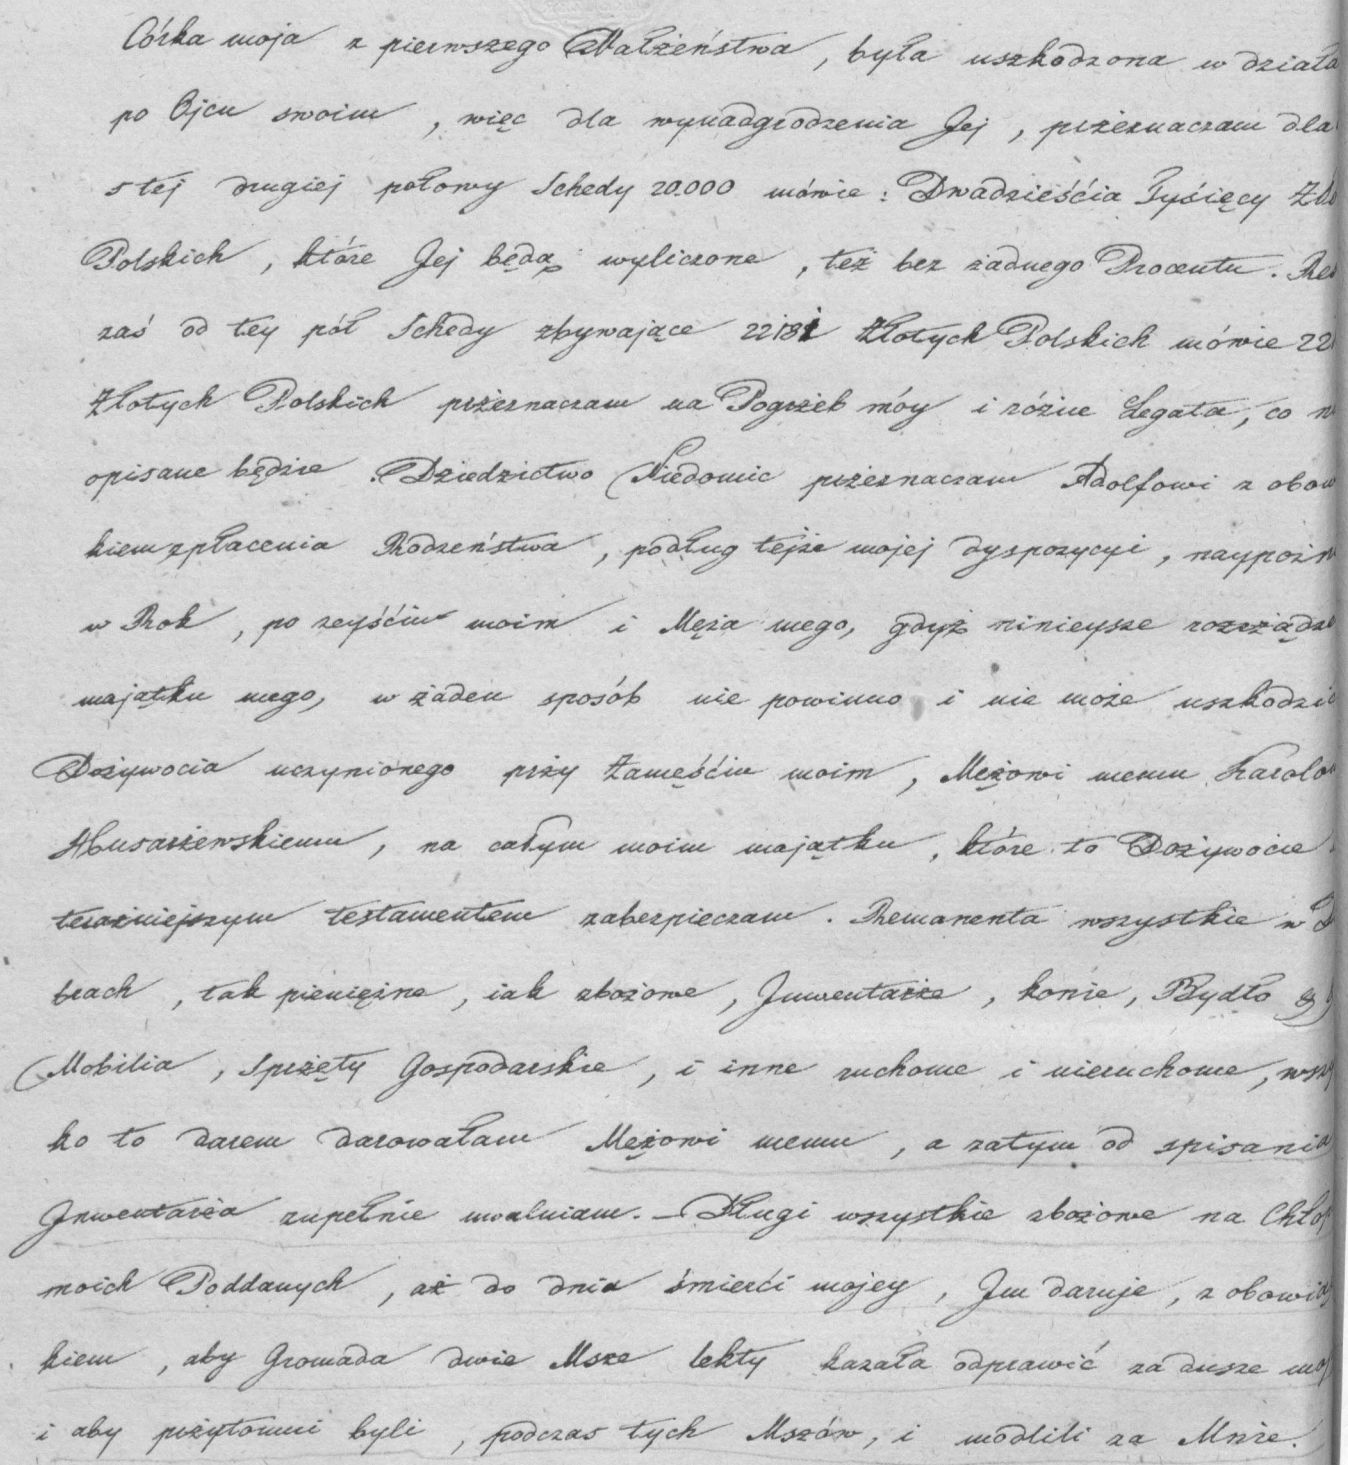 Córka moja z pierwszego Małżeństwa, była uszkodzona w działa
po Ojcu swoim, więc dla wynadgrodzenia Jej, przeznaczam dla
s tej drugiej połowy Schedy 20.000 mówie: Dwadzieścia Tysięcy Zło
Polskich, które Jej będą wyliczone, też bez żadnego Procentu. Res
zaś od tey pół Schedy zbywające Złotych Polskich mówie 22
Złotych Polskich przeznaczam na Pogrzeb móy i różne Legata, co n
opisane będzie. Dziedzictwo Niedomic przeznaczam Adolfowi z obow
kiem zpłacenia Rodzeństwa, podług tejże mojej dyspozycyi, naypożn
w Rok, po zeyściu moim i Męża mego, gdyż ninieysze rozrządze
majątku mego, w żaden sposób nie powinno i nie może uszkodzić
Dożywocia uczynionego przy Zamęściu moim, Mężowi memu Karolow
Husarzewskiemu, na całym moim majątku, które to Dożywocie
teraźniejszym testamentem zabezpieczam. Remanenta wszystkie w D
brach, tak pieniężne, iak zbożowe, Jnwentarze, konie, Bydło
Mobilia, Sprzęty Gospodarskie, i inne ruchome i nieruchome, wszy
ko to darem darowałam Mężowi memu, a zatym od spisania
Jnwentarza zupełnie uwalniam. – Długi wszystkie zbożowe na Chłop
moich Poddanych, aż do dnia śmierći mojey, Jm daruje, z obowią
kiem, aby Gromada dwie Msze lekty kazała odprawić za dusze moj
i aby przytomni byli, podczas tych Mszów, i modlili za Mnie.